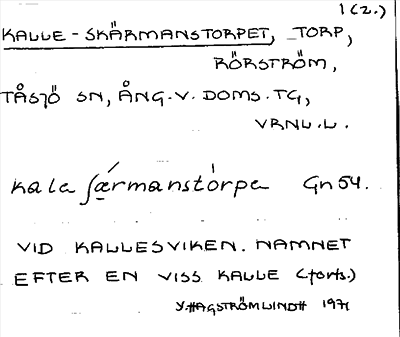 1 (2.)
KALLE-SKÄRMANSTORPET, TORP,
RÖRSTRÖM,
TÅSJÖ SN, ÅNG.V. DOMS.TG,
VRNL.L.
kale ʃǽ̱rmanstòrpe Gn 54.
VID KALLESVIKEN. NAMNET
EFTER EN VISS KALLE (forts.)
Y.HAGSTRÖMLINDH 1971